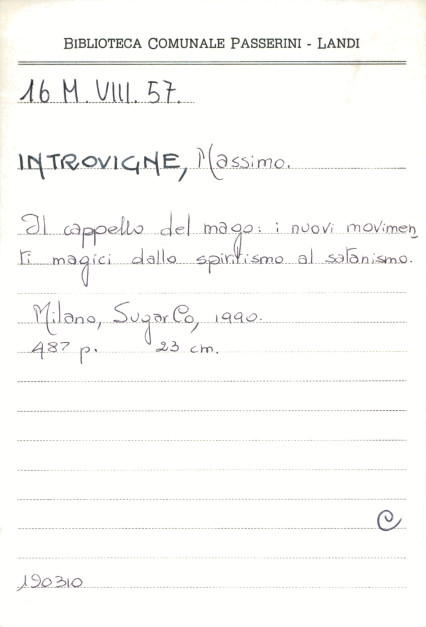 BIBLIOTECA COMUNALE PASSERINI - LANDI
16 M. VIII. 57.
INTROVIGNE, Massimo.
Il cappello del mago: i nuovi movimen
ti magici dallo spiritismo al satanismo.
Milano, SugarCo, 1990.
487 p. 23 cm.
C
190310